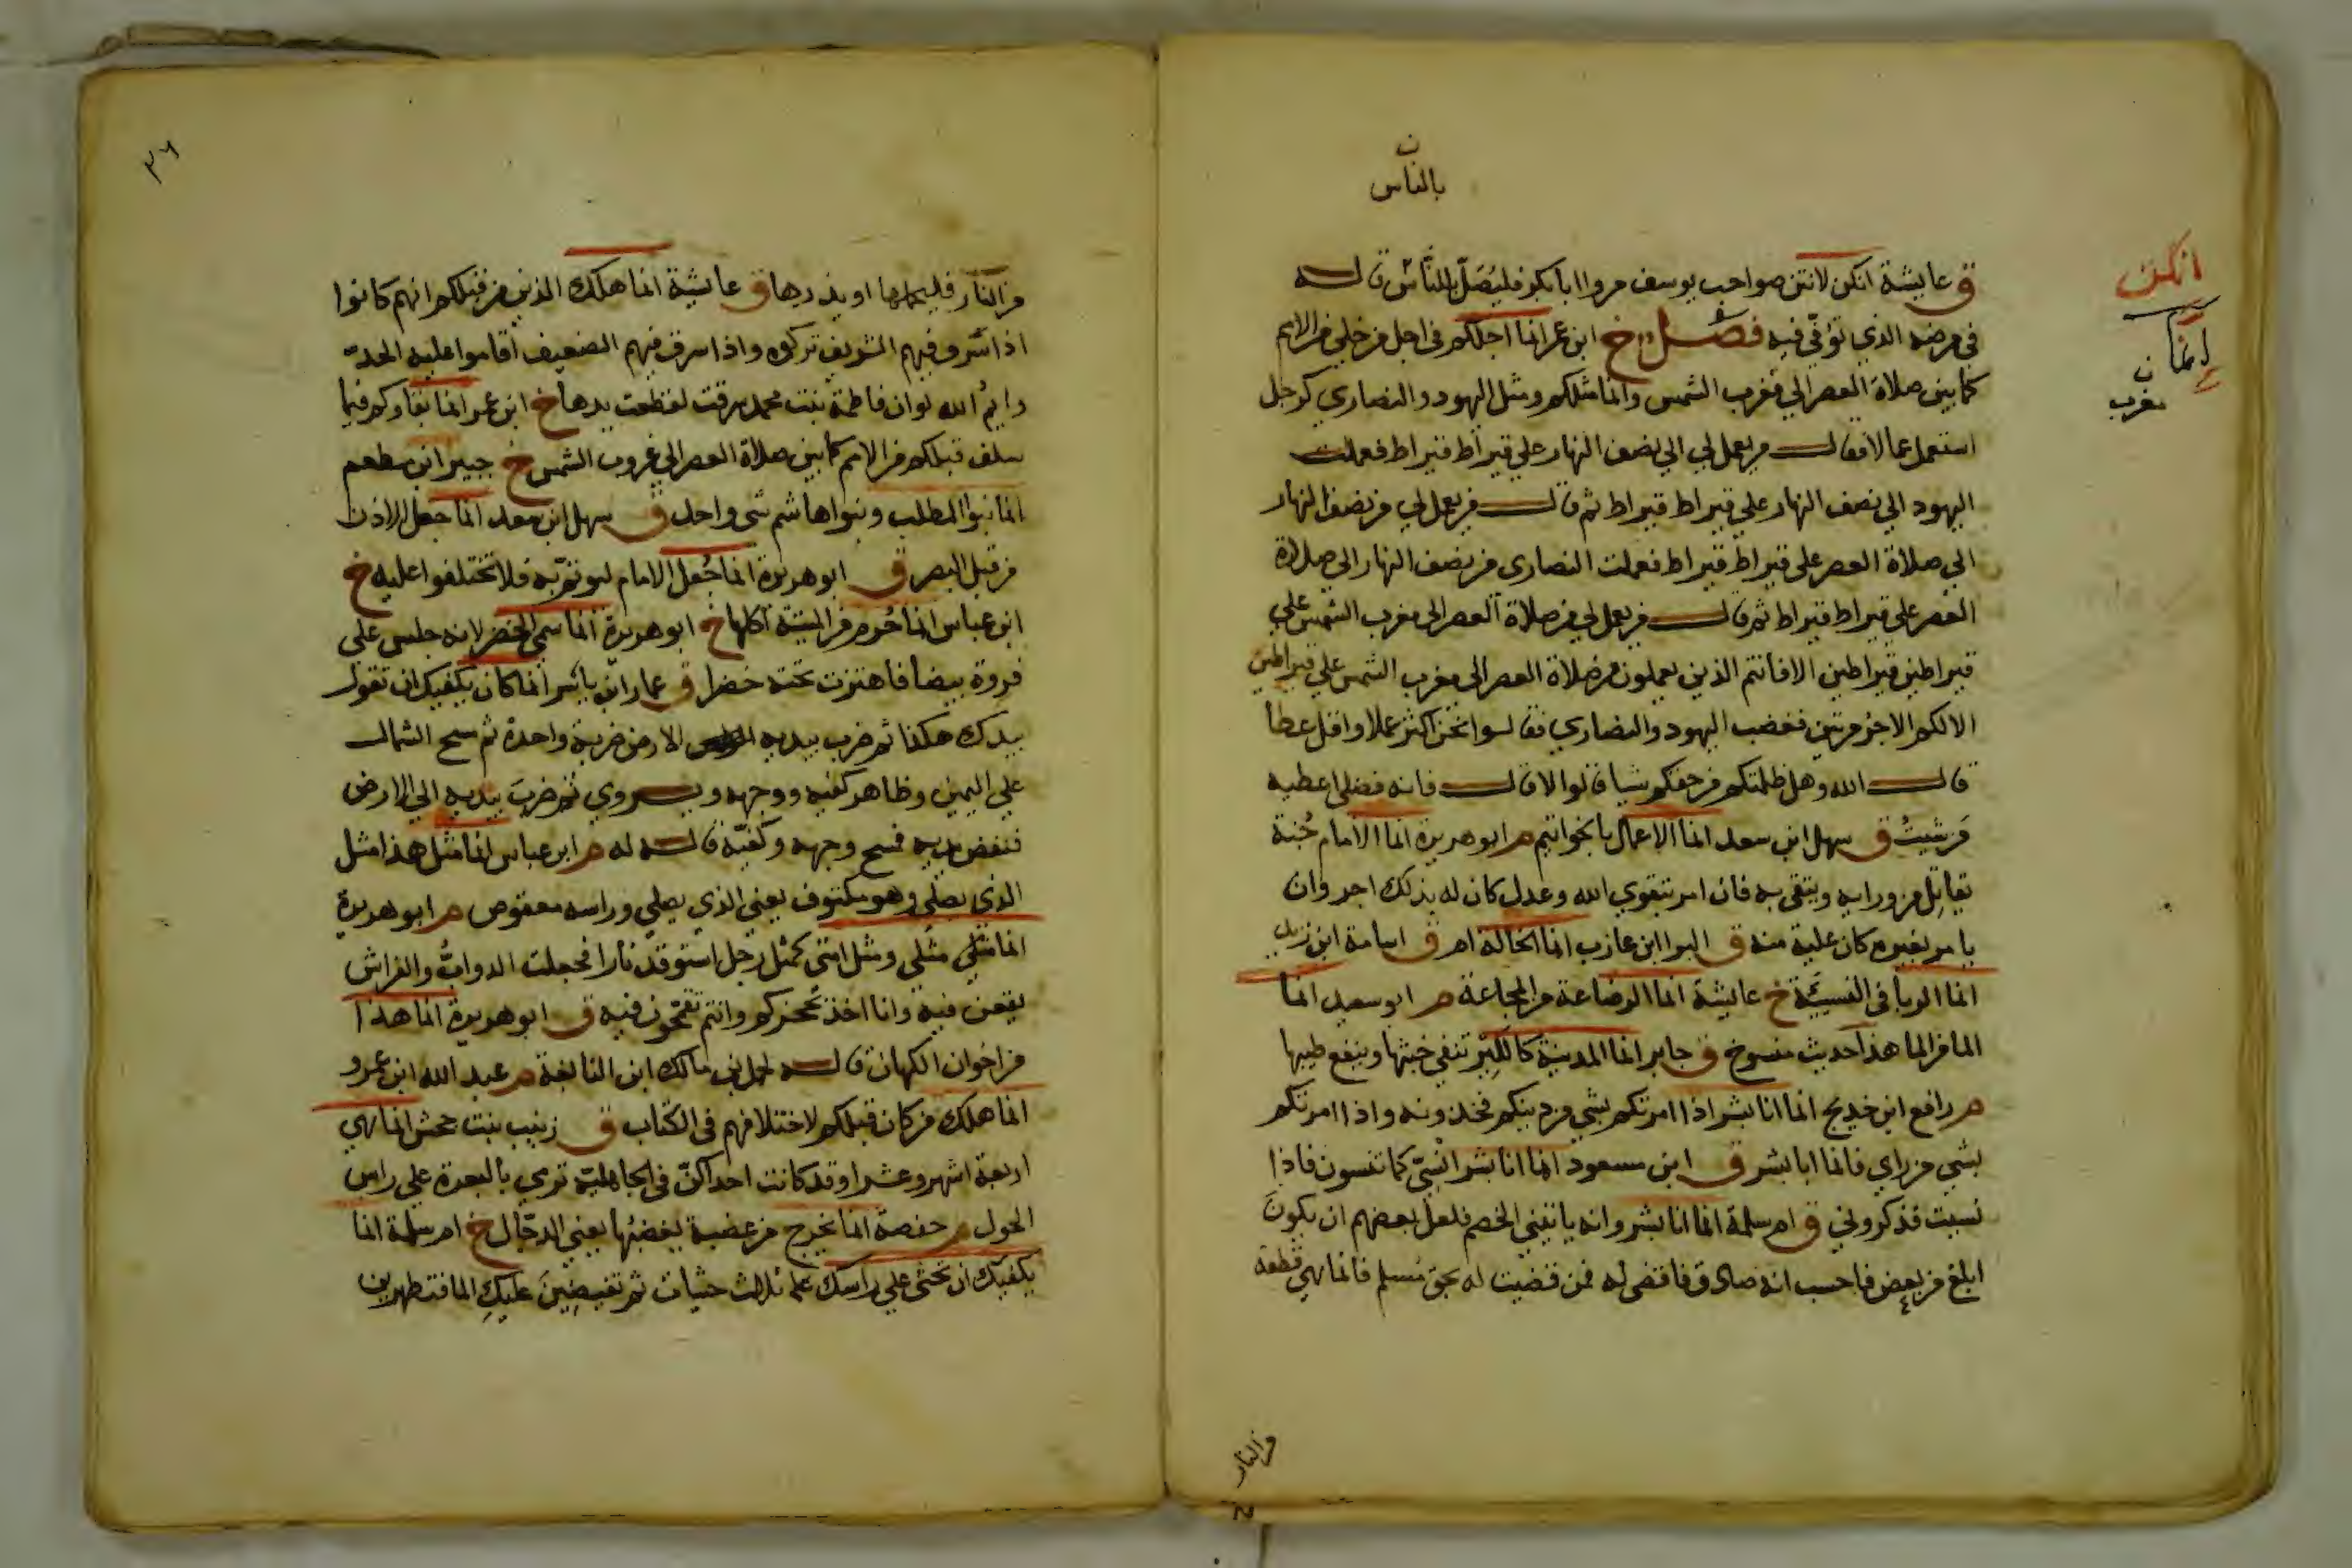 ن
بالناس
انكن
انما
ن
مغرب
ق عايشة انكن لانتن صواحب يوسف مروا ابا بكر فليُصَلِّ بالناس قاله
في مرضه الذي تُوُفّي فيه فصل خ ابن عمر انما اجلكم في اجل من خلي من الامم
كما بين صلاة العصر الي مغرب الشمس وانما مثلكم ومثل اليهود والنصاري كرجل
استعمل عمالا فقال من يعمل لي الي نصف النهار علي قيراط قيراط فعملت
اليهود الي نصف النهار علي قيراط قيراط ثم قال من يعمل لي من نصف النهار
الي صلاة العصر علي قيراط قيراط فعملت النصارى من نصف النهار الي صلاة
العصر علي قيراط قيراط ثم قال من يعمل لي من صلاة العصر الي مغرب الشمس علي
قيراطين قيراطين الا فانتم الذين يعملون من صلاة العصر الي مغرب الشمس علي قيراطين
الا لكم الاجر مرتين فغضب اليهود والنصاري فقالوا نحن اكثر عملا واقل عطا
قال الله وهل ظلمتكم من حقكم شيا قالوا لا قال فانه فضلي اعطيه
مَن شيتُ ق سهل ابن سعد انما الاعمال بالخواتيم م ابو هريرة انما الامام جُنة
يقاتل من ورايه ويتقي به فان امر بتقوي الله وعدل كان له بذلك اجر وان
يامر بغيره كان عليه منه ق البرا ابن عازب انما الخالة ام ق اسامة ابن زيد
انما الربا في النسيّة خ عايشة انما الرضاعة من المجاعة م ابو سعيد انما
الما من الما هذا حديث منسوخ ق جابر انما المدينة كالكير تنفي خبثها وينصع طيبها
م رافع ابن خديج انما انا بشر اذا امرتكم بشي من دينكم فخذو نه واذا امرتكم
بشي من راي فانما انا بشر ق ابن مسعود انما انا بشر انسي كما تنسون فاذا
نسيت فذكروني ق ام سلمة انما انا بشر وانه ياتيني الخصم فلعل بعضهم ان يكونَ
ابلغ من بعض فاحسب انه صادق فاقضي له فمن قضيت له بحق مسلم فانما هي قطعة
من النار
٣٦
من النار فليحملها او يذرها ق عايشة انما هلك الذين من قبلكم انهم كانوا
اذا سرق فيهم الشريف تركوه واذا سرق فيهم الضعيف أقاموا عليه الحدّ
وايمُ الله لو ان فاطمة بنت محمد سرقت لقطعت يدها خ ابن عمر انما بقاوكم فيما
سلف قبلكم من الامم كما بين صلاة العصر الي غروب الشمس خ جبير ابن مطعم
انما بنوا المطلب وبنوا هاشم شي واحد ق سهل ابن سعد انما جعل الاذن
من قبل البصر ق ابو هريرة انما جُعل الامام ليوتمّ به فلا تختلفوا عليه خ
ابن عباس انما حُرم من الميتة اكلها خ ابو هريرة انما سمي الخضر لانه جلس على
فروة بيضا فاهتزت تحته خضرا ق عمار ابن ياسر انما كان يكفيك ان تقول
بيدك هكذا ثم ضرب بيديه الارض ضربة واحدة ثم مسح الشمال
علي اليمين وظاهر كفيه ووجهه ويروي ثم ضربَ بيديه الي الارض
فنفض يديه فمسح وجهه وكفيّه قاله له م ابن عباس انما مثل هذا مثل
الذي يصلي وهو مكتوف يعني الذي يصلي وراسه معقوص م ابو هريرة
انما مثلي ومثل امتي كمثل رجل استوقد نارا فجعلت الدوابُّ والفراش
يقعن فيه وانا اخذ بحجزكم وانتم تقحمون فيه ق ابو هريرة انما هذا
من اخوان الكهان قاله لحمل بن مالك ابن النابغة م عبد الله ابن عمرو
انما هلك من كان قبلكم لاختلافهم في الكتاب ق زينب بنت جحش انما هي
اربعة اشهر وعشرا وقد كانت احداكنّ في الجاهلية ترمي بالبعرة علي راس
الحول م حفصة انما يخرج من غضبة يغضبُها يعني الدجّال خ ام سلمة انما
يكفيك ان تحثي علي راسك ثلاث حثيات ثم تفيضينَ عليكِ الما فتطهرين